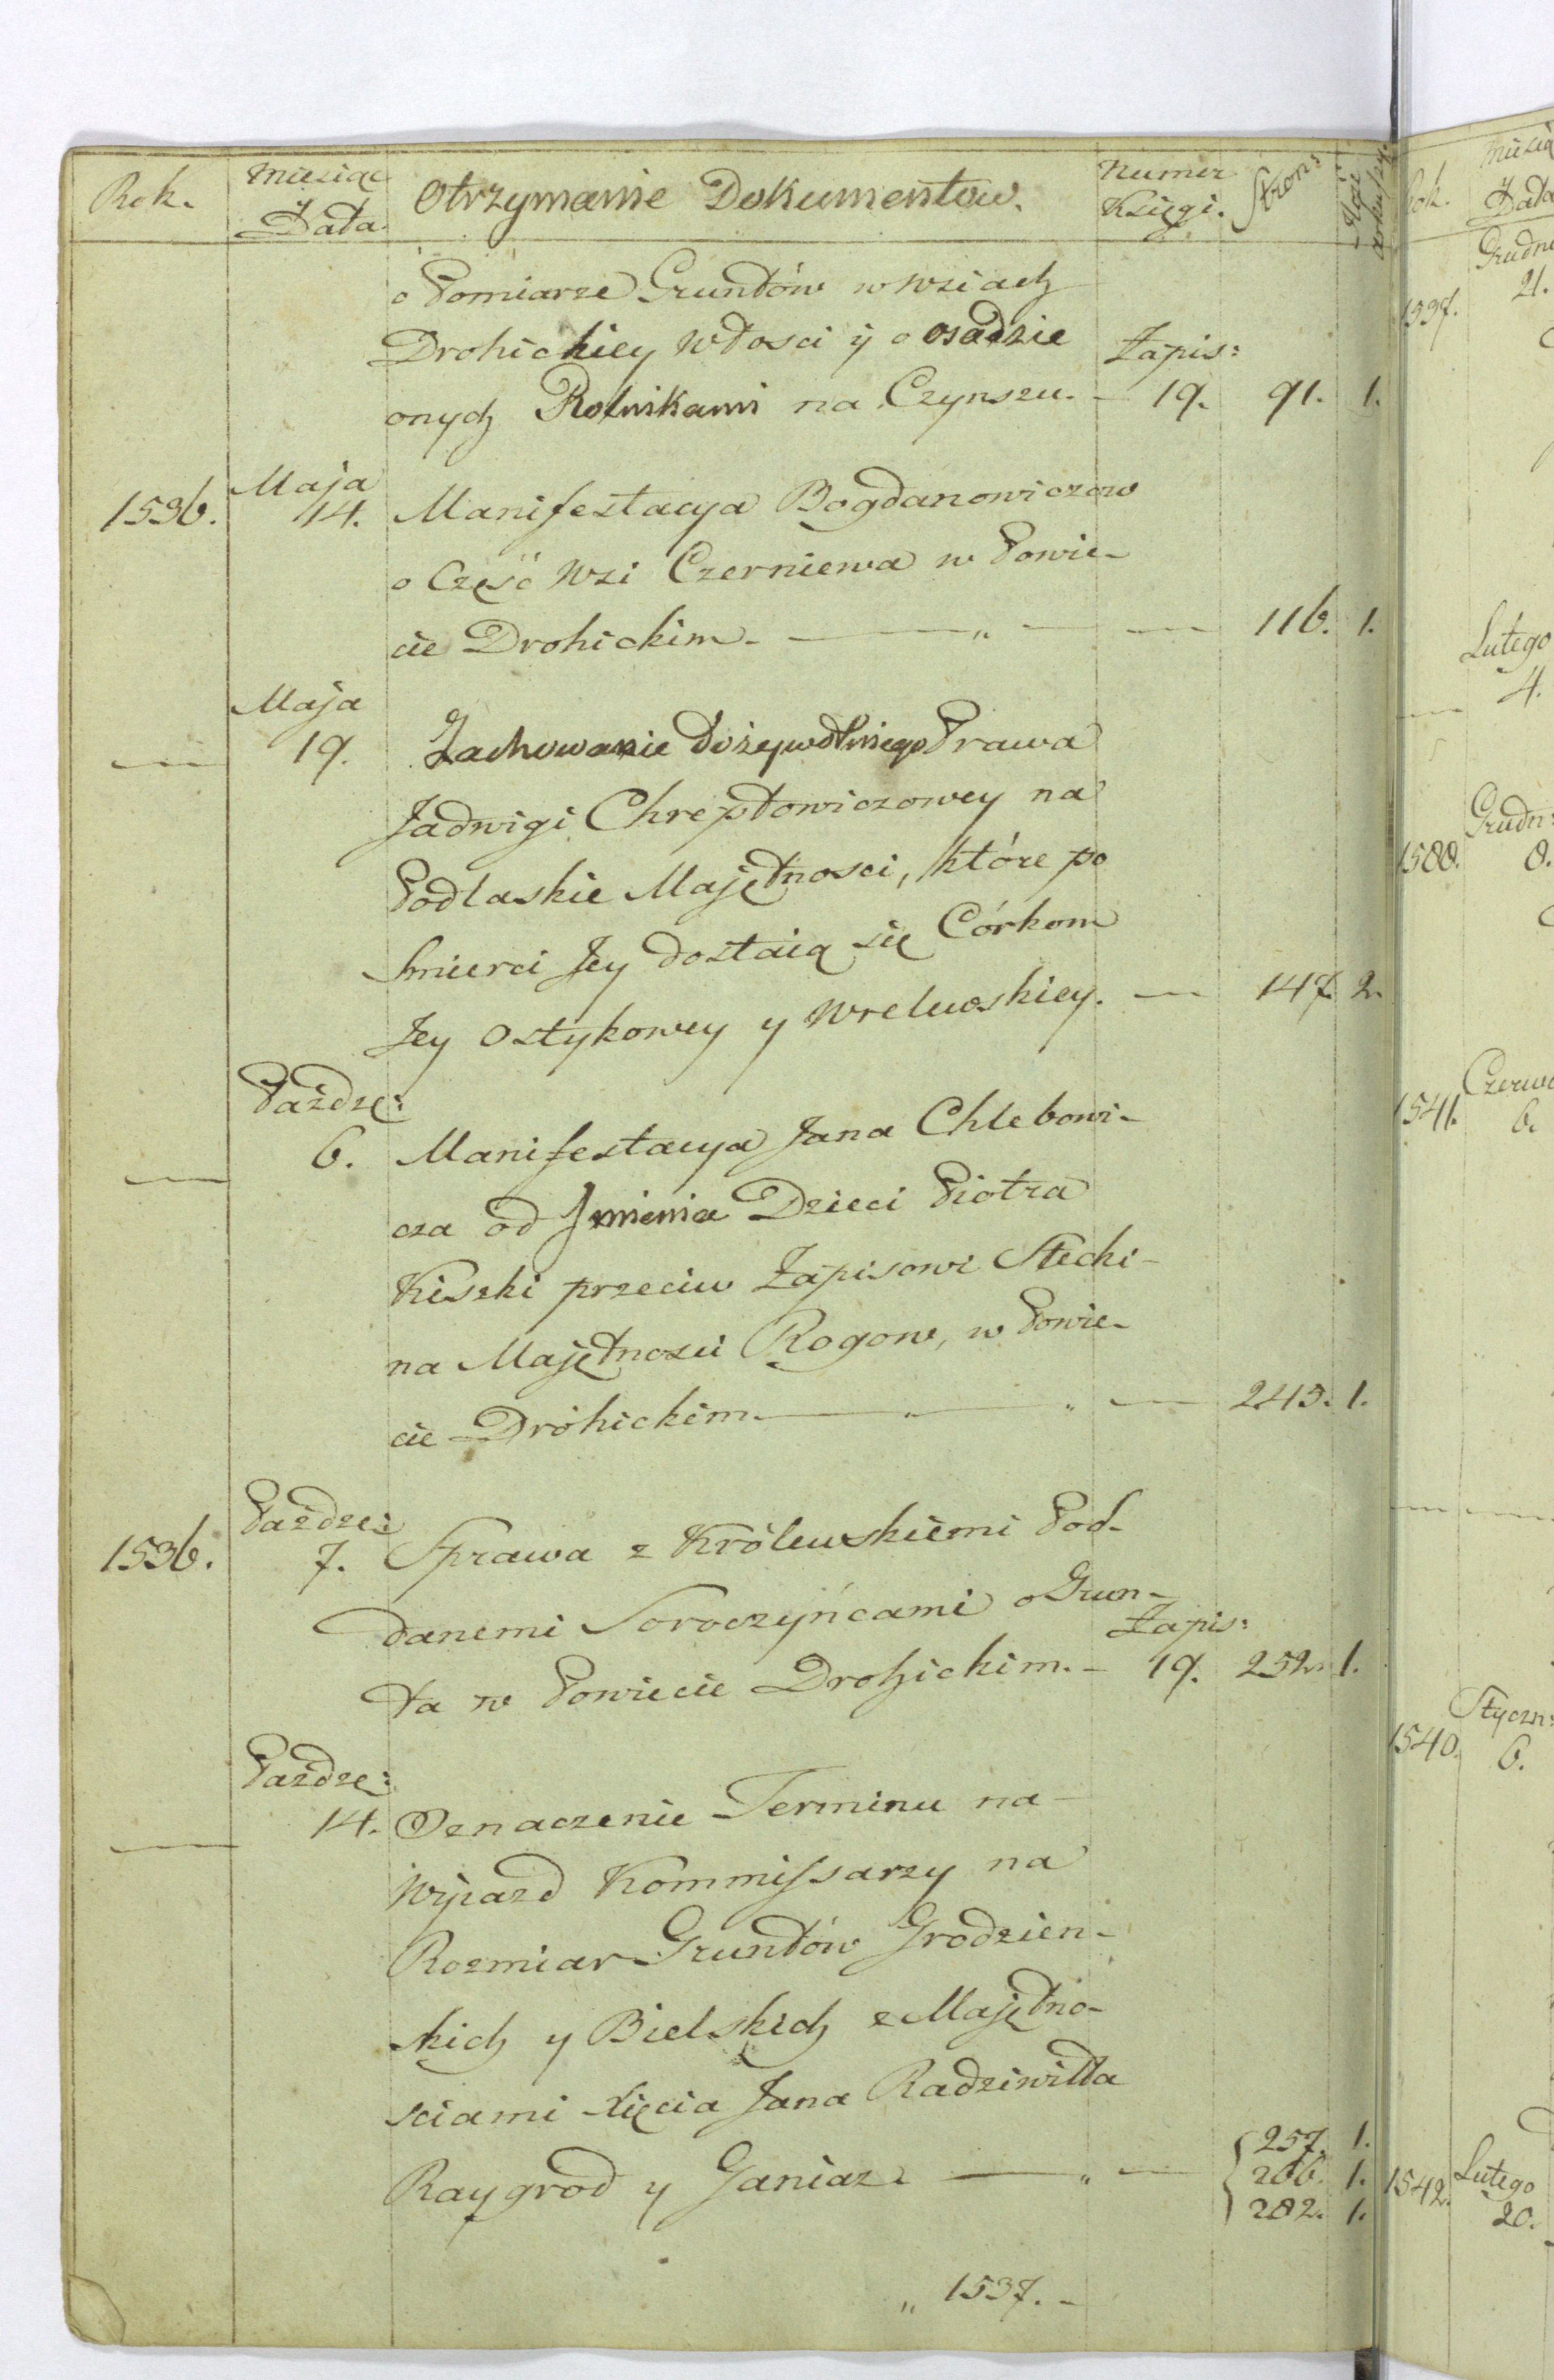 Rok. Miesiąc Data. Otrzymanie Dokumentow. Numer Księgi. Stron:
o Pomiarze Gruntów w wsiach
Drohickiey włosci ÿ o osadzie Zapis:
onych Rolnikami na Czynszu. - 19. 91. 1.
Maja
1536. 14. Manifestacya Bogdanowiczow
o Część wsi Czerniewa w Powie-
cie Drohickim. — „ — — 116. 1.
Maja
— 19. Zachowanie Dożywotniego Prawa
Jadwigi Chreptowiczowey na
Podlaskie Majętnosci, które po
Smierci Jey dostaią się Córkom
Jey Ostykowey y Wrelewskiey. — 147. 2.
Paźdze:
— 6. Manifestacya Jana Chlebowi-
cza od Jmienia Dzieci Piotra
Kiszki przeciw Zapisowi Stecki-
na Majętnosci Rogow, w Powie-
cie Drohickim. — „ — „ — 243. 1.
Paźdze:
1536. 7. Sprawa z Królewskiemi Pod-
danemi Soroczyńcami o Grun- Zapis:
ta w Powiecie Drohickim. - 19. 252. 1.
Paźdze:
— 14. Oznaczenie Terminu na
Wyiazd Kommissarzy na
Rozmiar Gruntów Grodzien-
skich y Bielskich z Majętno-
sciami Xięcia Jana Radziwiłła
Raygrod y Ganiaz. — „ — { 257. 1.
266. 1.
282. 1.
„ 1537. -
Rok. Data
1537. 21.
Lutego
— 4.
Grudn:
1538. 8.
1541. 6.
—
Styczn:
1540. 6.
1542. Lutego
20.